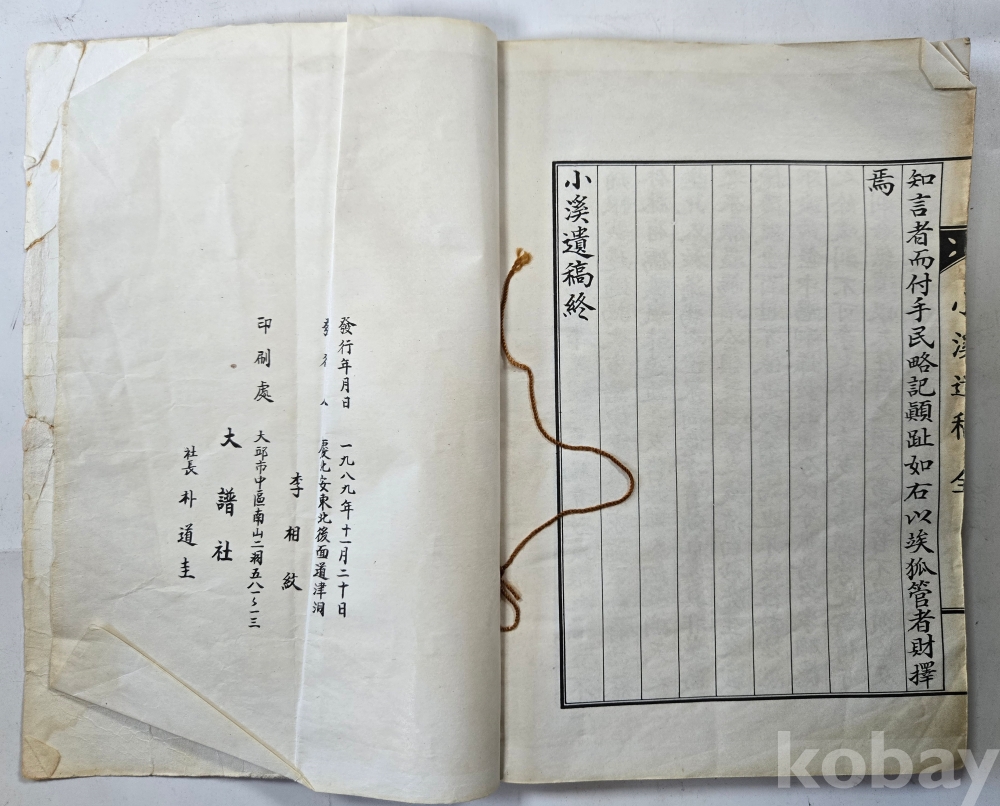 小溪遺稿 全
知言者而付手民略記顚趾如右以竢狐管者財擇
焉
小溪遺稿終
發行年月日 一九八九年十一月二十日
慶北安東北後面道津洞
李相紋
印刷處 大邱市中區南山二洞五八一~一三
大譜社
社長 朴道圭
kobay